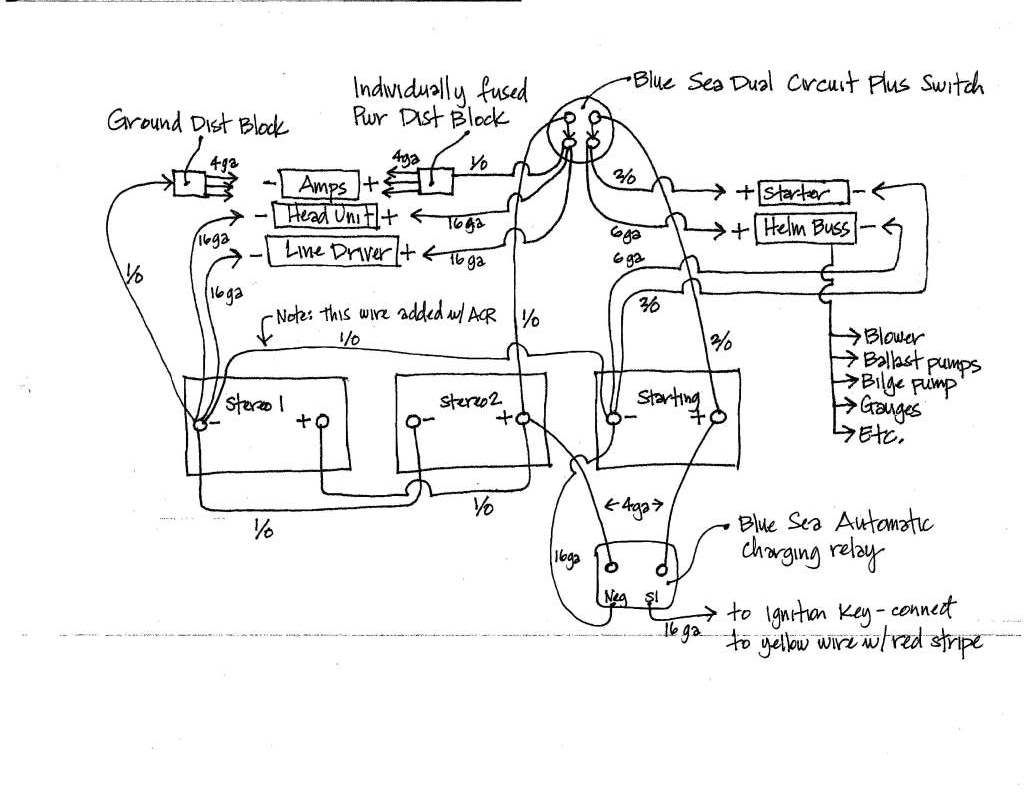 Individually fused
Pwr Dist Block
Blue Sea Dual Circuit Plus Switch
Ground Dist Block
4ga
4ga
1/0
- Amps +
2/0
+ Starter -
- Head Unit +
16ga
16ga
6ga
+ Helm Buss -
- Line Driver +
16ga
6ga
1/0
16ga
2/0
Note: this wire added w/ ACR
1/0
1/0
2/0
Blower
Ballast pumps
Bilge pump
Gauges
Etc.
Stereo 1
- +
Stereo 2
- +
Starting
- +
1/0
1/0
4ga
Blue Sea Automatic
Charging relay
16ga
Neg SI
16ga
to Ignition Key - connect
to yellow wire w/ red stripe